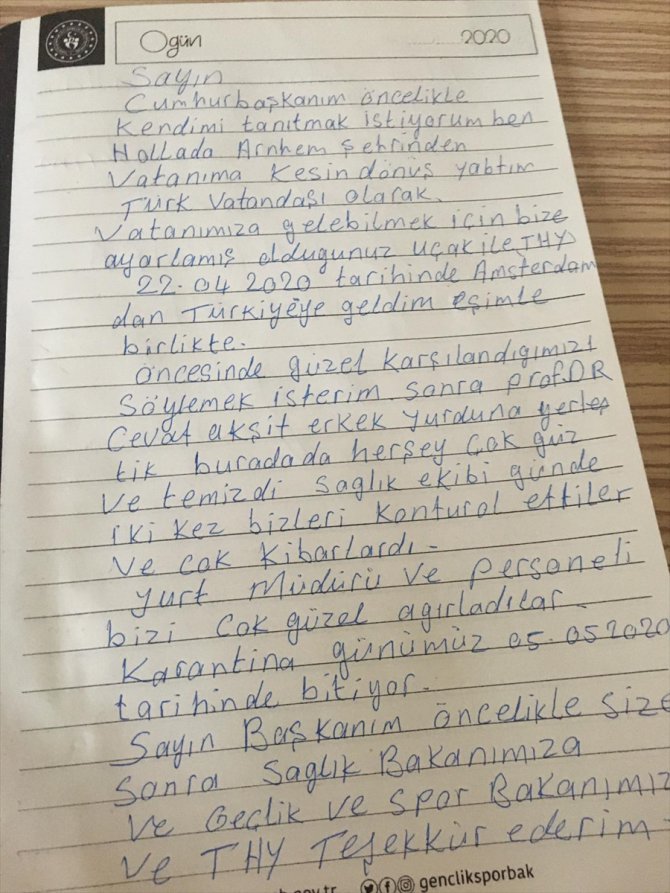 Ogün
2020
Sayın
Cumhurbaşkanım öncelikle
Kendimi tanıtmak istiyorum ben
Hollada Arnhem şehrinden
Vatanıma kesin dönüş yabtım
Türk Vatandaşı olarak.
Vatanımıza gelebilmek için bize
ayarlamış oldugunuz uçak ile THY
22.04 2020 tarihinde Amsterdam
dan Türkiyeye geldim eşimle
birlikte.
öncesinde güzel karşılandıgımızı
Söylemek isterim sonra prof.DR
Cevat akşit erkek yurduna yerleş
tik buradada herşey çok güz
ve temizdi saglık ekibi günde
iki kez bizleri konturol ettiler
ve cok kibarlardı.
yurt Müdürü ve personeli
bizi cok güzel agırladılar.
Karantina günümüz 05.052020
tarihinde bitiyor.
Sayın Başkanım öncelikle size
sonra saglık Bakanımıza
ve Geçlik ve spor Bakanımız
ve THY Teşekkür ederim
gov.tr gencliksporbak